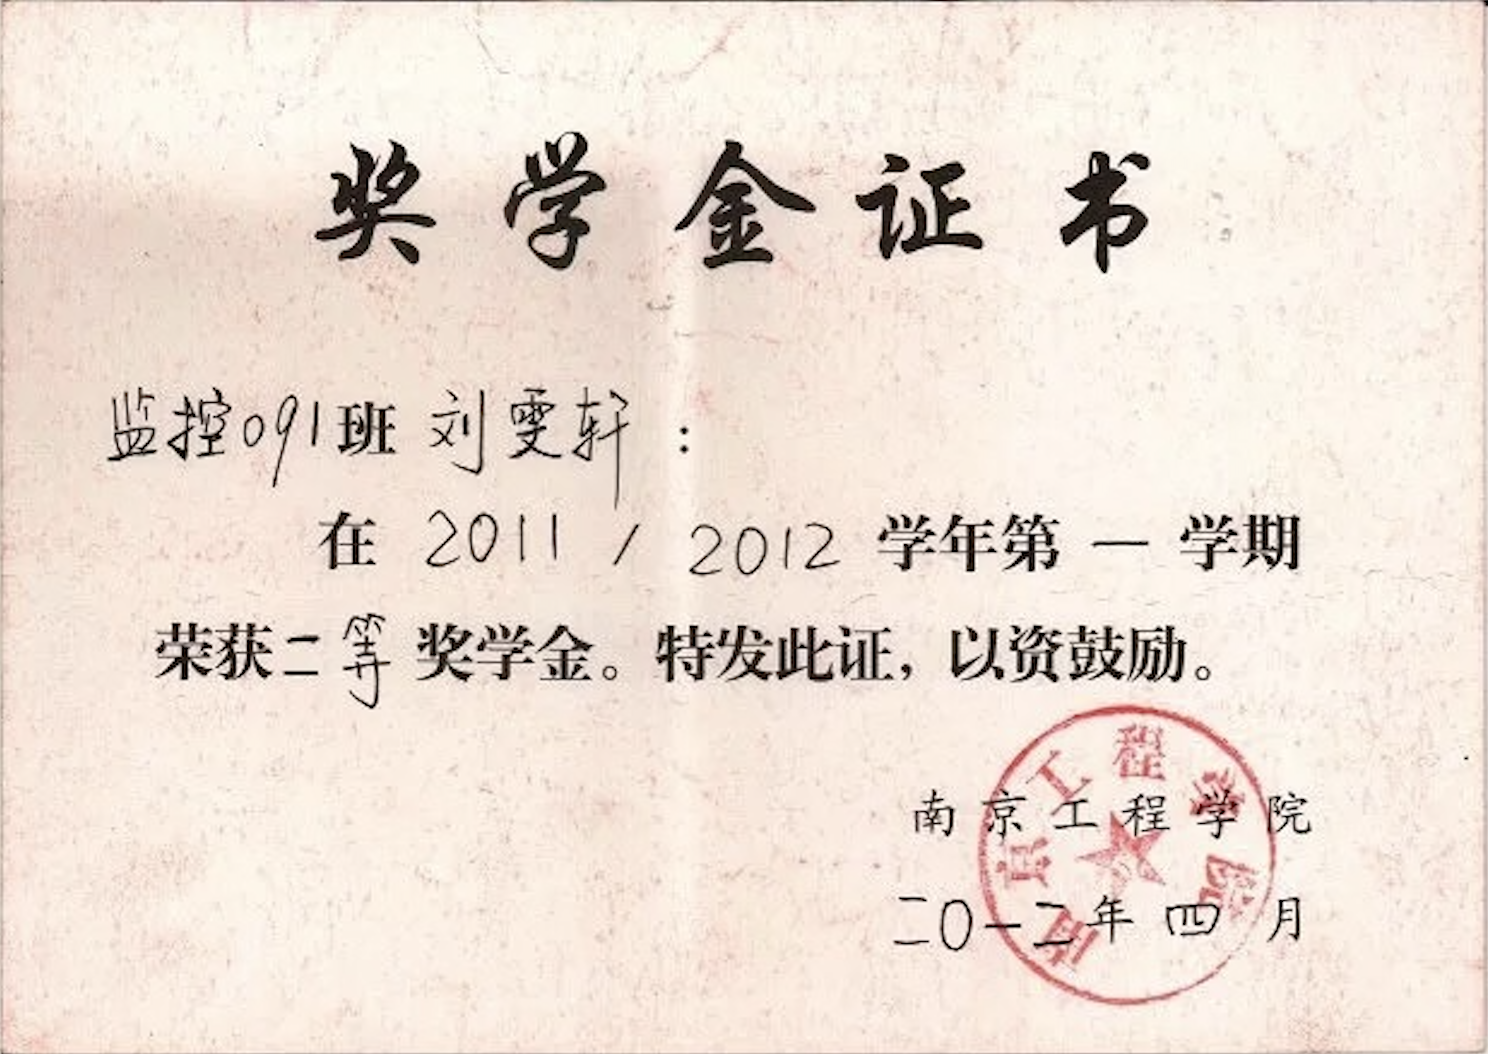 奖学金证书
监控091班 刘雯轩：
在 2011 / 2012 学年第 一 学期
荣获二等 奖学金。特发此证，以资鼓励。
南京工程学院
二〇一二年 四 月
南京工程学院